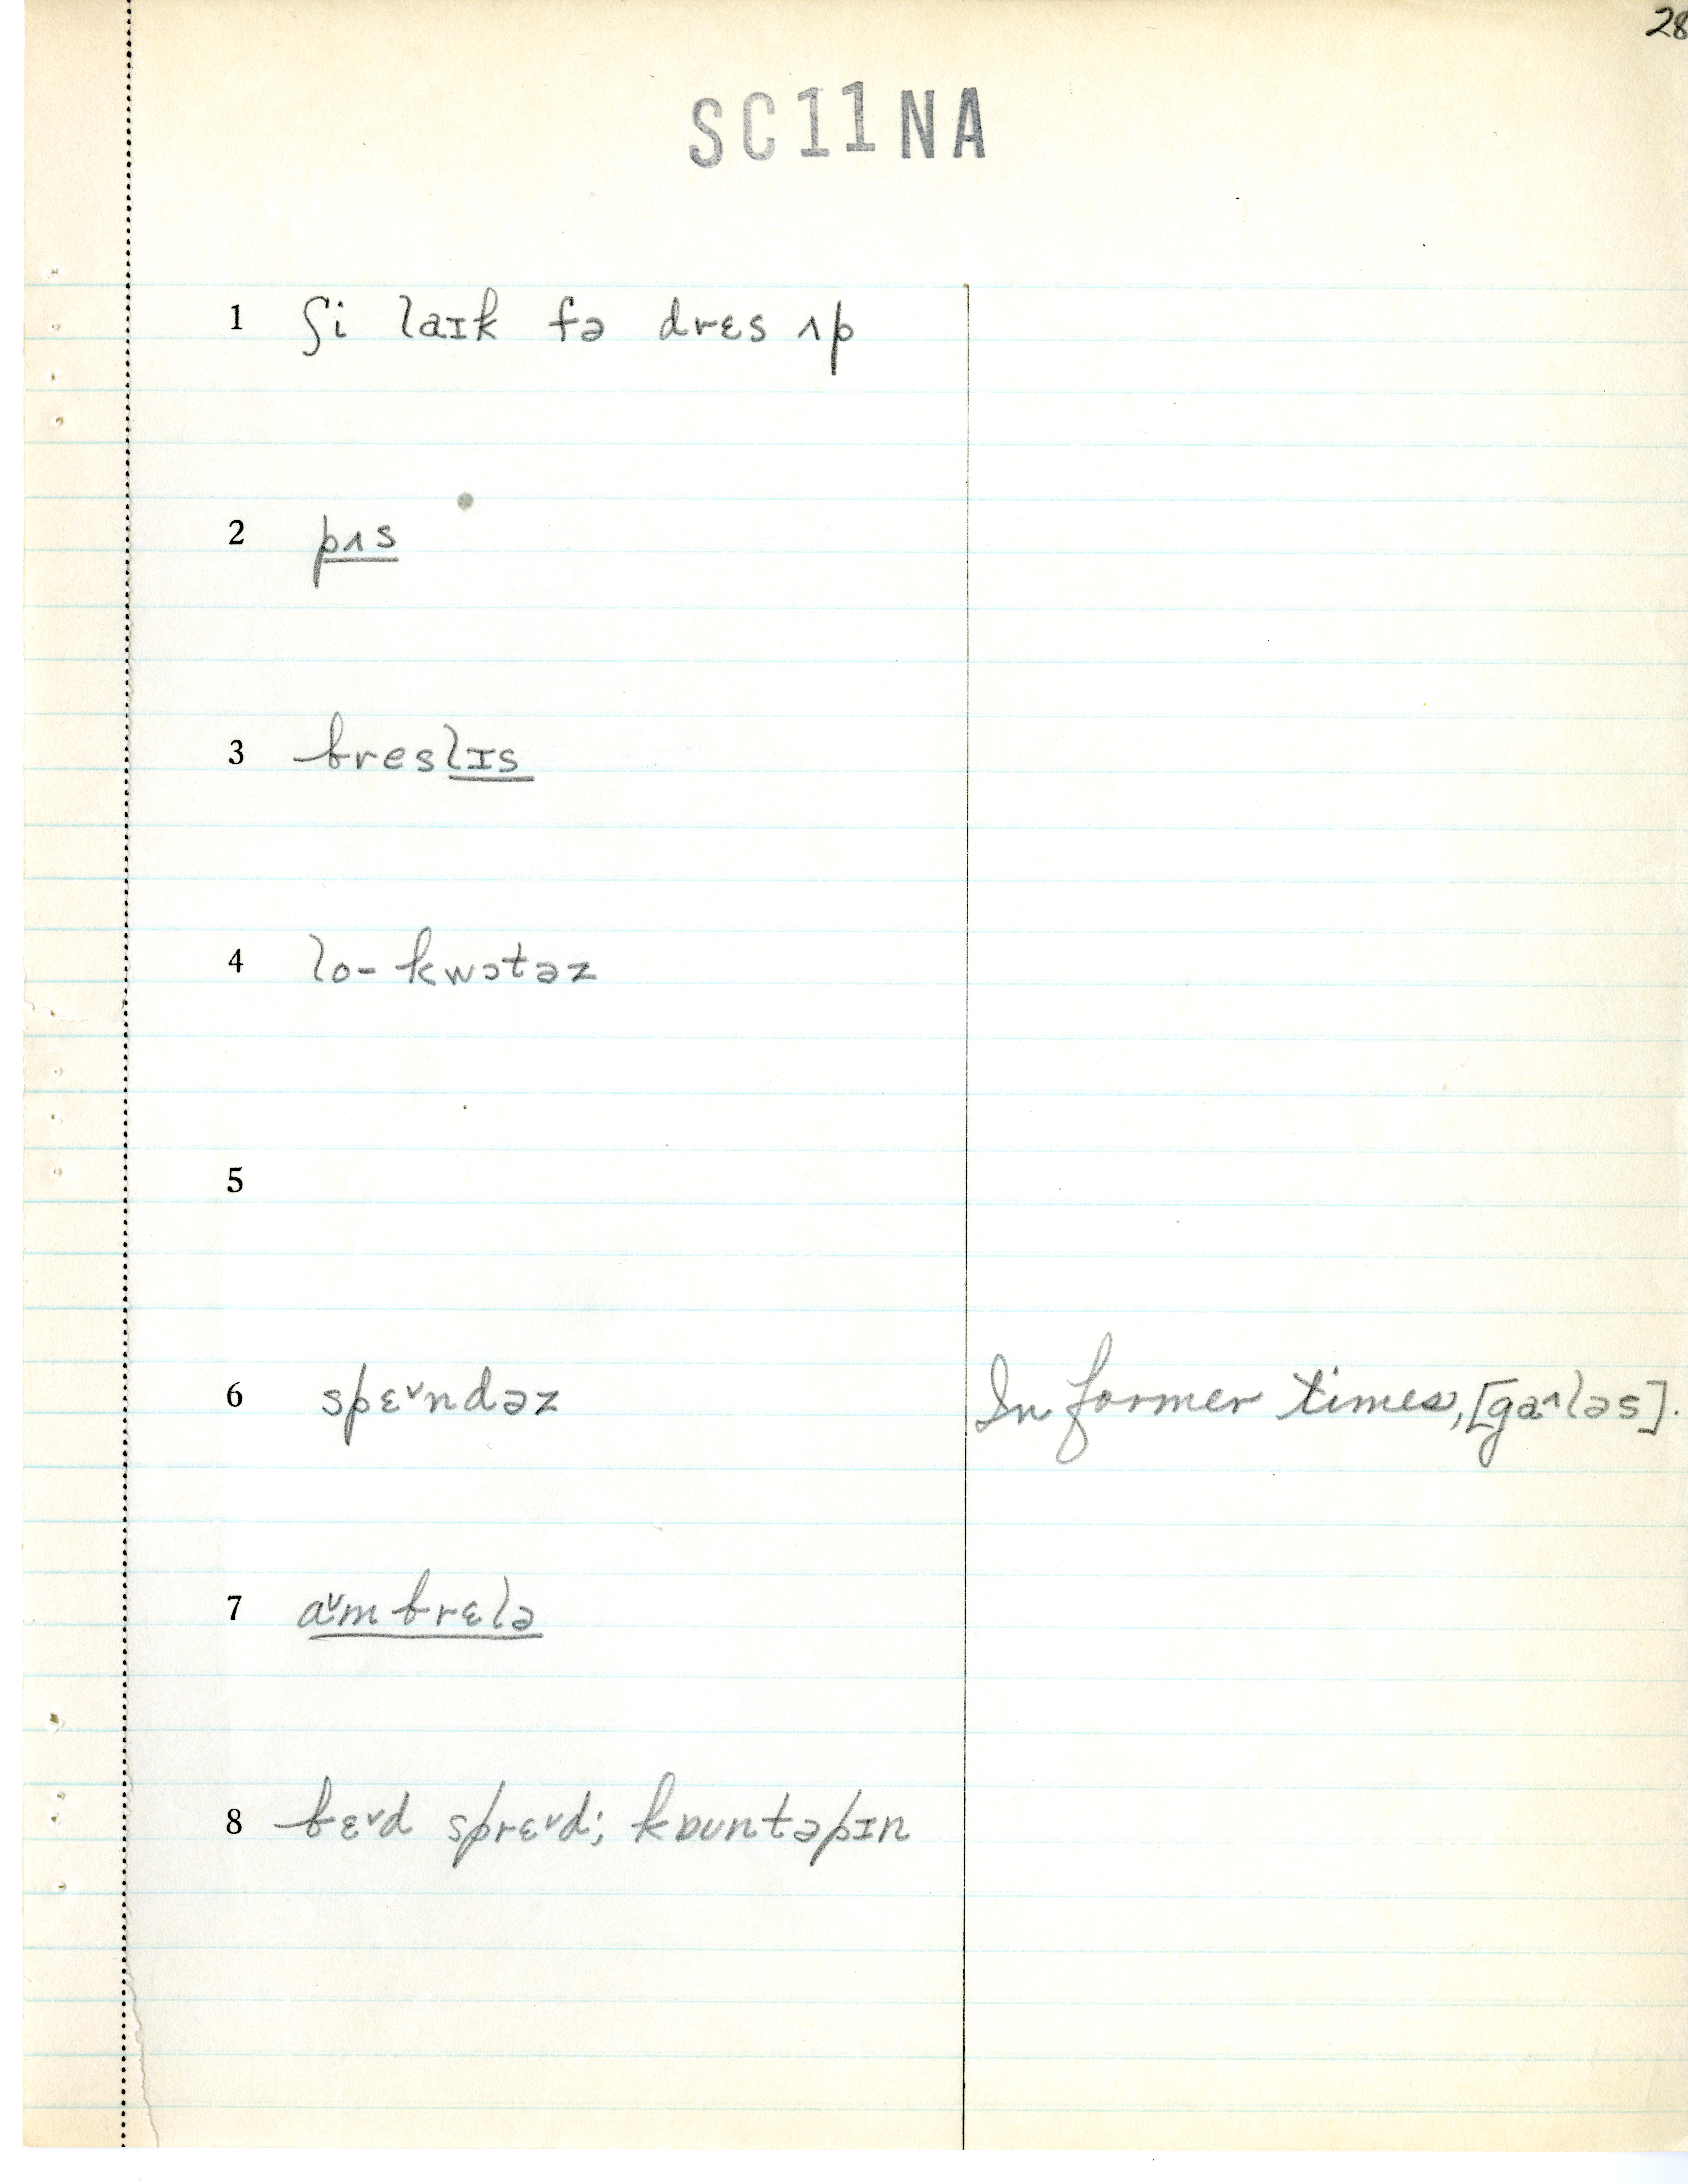 28
SC11NA
1 ʃi laɪk fə drɛs ʌp
2 pʌs
3 breslɪs
4 lo-kwɔtəz
5
6 spɛ˅ndəz In former times, [ga˄ləs].
7 a˅mbrɛlə
8 bɛ˅d sprɛ˅d; kɒuntəpɪn